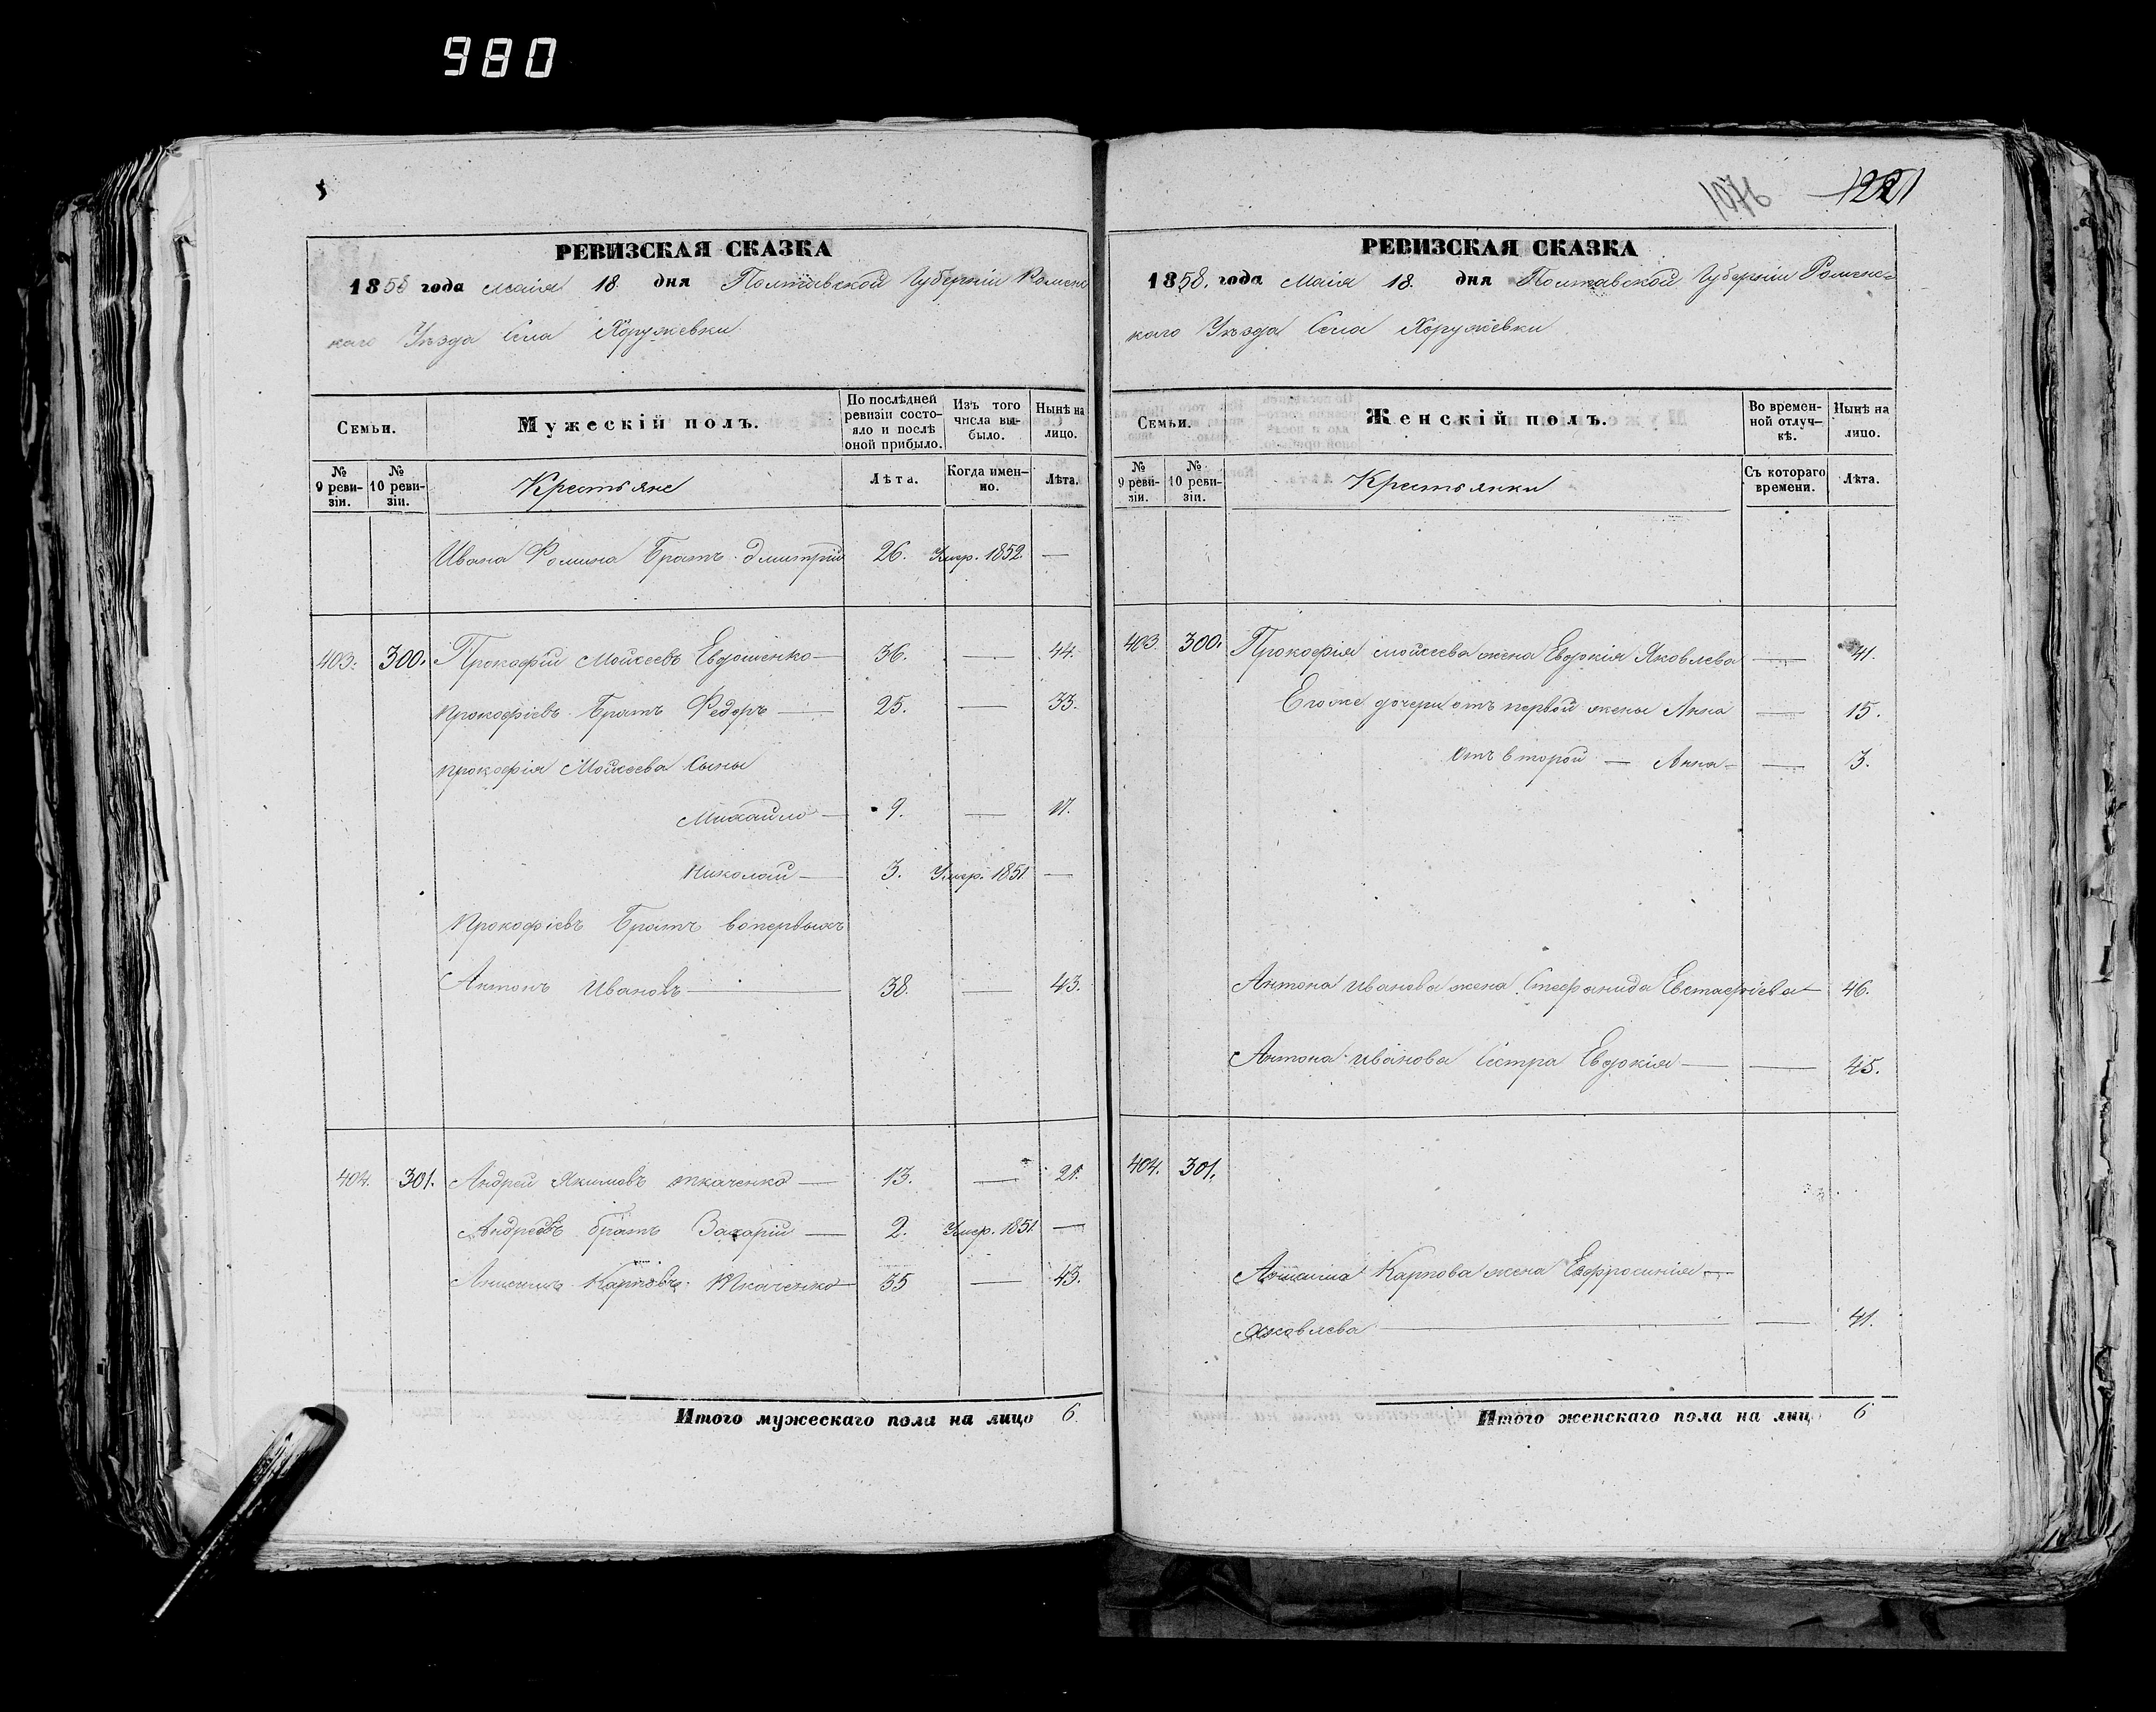 980
1076 1221
РЕВИЗСКАЯ СКАЗКА
1858 года Маія 18. дня Полтавской Губерніи Роменс
каго Уѣзда Села Хоружевки
Семьи.
Мужескій полъ.
По послѣдней ревизіи состо-
яло и послѣ оной прибыло.
Изъ того числа вы-
было.
Нынѣ на лицо.
№ 9 реви-
зіи.
№ 10 реви-
зіи.
Крестьяне
Лѣта.
Когда имен-
но.
Лѣта.
Ивана Фомина Братъ Дмитрій 26. Умер. 1852. —
403. 300. Прокофій Мойсеевъ Евдошенко — 36. — 44.
Прокофіевъ Братъ Федоръ — 25. — 33.
Прокофія Мойсеева Сыны
Михайло — 9. — 17.
Николай — 3. Умер. 1851 —
Прокофіевъ Братъ вопервыхъ
Антонъ Ивановъ — 38. — 43.
404. 301. Андрей Якимовъ Ткаченко — 13. — 21.
Андреевъ братъ Захарій — 2. Умер. 1851 —
Карповъ Ткаченко 35 — 43.
Итого мужескаго пола на лицо 6.
РЕВИЗСКАЯ СКАЗКА
1858. года Маія 18. дня Полтавской Губерніи Роменс-
каго Уѣзда Села Хоружевки
Семьи.
Женскій полъ.
Во времен-
ной отлуч-
кѣ.
Нынѣ на лицо.
№ 9 реви-
зіи.
№ 10 реви-
зіи.
Крестьянки
Съ котораго времени.
Лѣта.
403. 300. Прокофія Мойсеева жена Евдокія Яковлева — 41.
Его же дочери отъ первой жены Анна — 15.
отъ второй — Анна — 3.
Антона Иванова жена Стефанида Евстафіева — 46.
Антона Иванова Сестра Евдокія — 45.
404. 301.
Карпова жена Евфросинія —
Яковлева — 41.
Итого женскаго пола на лиц 6